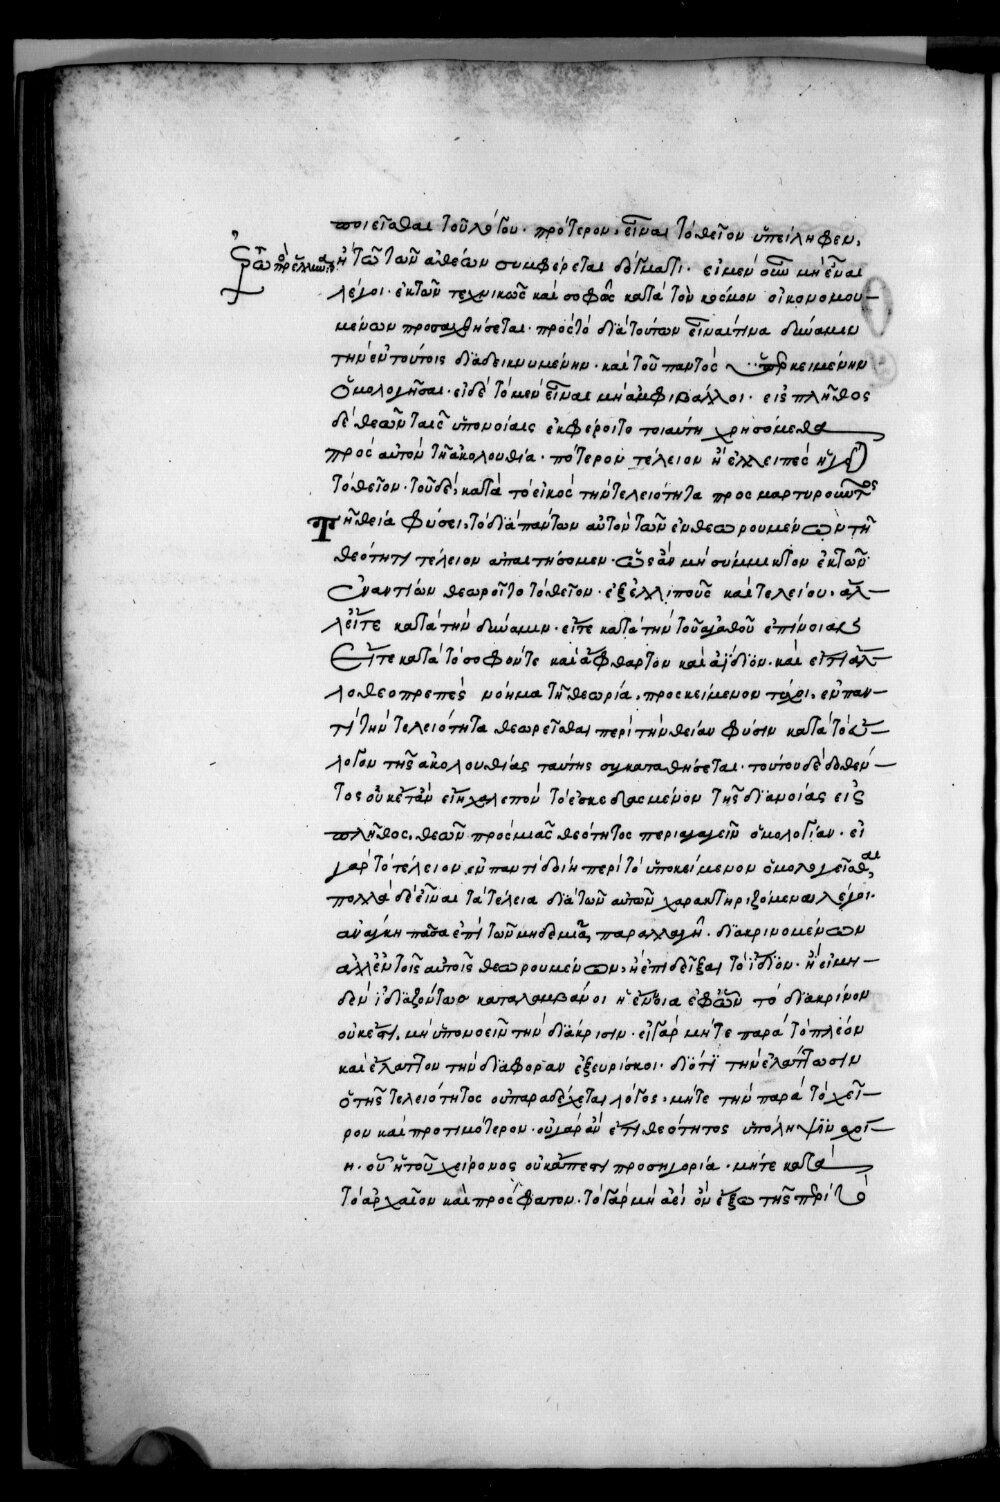 ποιεῖσθαι τοῦ λόγου. πρότερον, εἶναι τὸ θεῖον ὑπείληφεν,
ἢ τῶ τῶν ἀθέων συμφέρεται δόγματι. εἰ μὲν οὖν μὴ εἶναι
λέγοι. ἐκ τῶν τεχνικῶς καὶ σοφῶς κατὰ τὸν κόσμον οἰκονομου-
μένων προσαχθήσεται. πρὸς τὸ διὰ τούτων εἶναί τινα δύναμιν
τὴν ἐν τούτοις διαδεικνυμένην. καὶ τοῦ παντὸς ὑπερκειμένην
ὁμολογῆσαι. εἰ δὲ τὸ μὲν εἶναι μὴ ἀμφιβάλλοι. εἰς πλῆθος
δὲ θεῶν ταῖς ὑπονοίαις ἐκφέροιτο τοιαύτη χρησόμεθα
πρὸς αὐτὸν τῆ ἀκολουθία. πότερον τέλειον ἢ ἐλλειπὲς ἡγεῖ
τὸ θεῖον. τοῦ δὲ, κατὰ τὸ εἰκὸς τὴν τελειότητα προσμαρτυροῦντος
τῆ θεία φύσει, τὸ διὰ πάντων αὐτὸν τῶν ἐνθεωρουμένων τῆ
θεότητι τέλειον ἀπαιτήσομεν. ὡς ἂν μὴ σύμμικτον ἐκ τῶν
ἐναντίων θεωροῖτο τὸ θεῖον. ἐξ ἐλλιποῦς καὶ τελείου. ἀλ-
λ' εἴτε κατὰ τὴν δύναμιν. εἴτε κατὰ τὴν τοῦ ἀγαθοῦ ἐπίνοιαν
εἴτε κατὰ τὸ σοφόν τε καὶ ἄφθαρτον καὶ ἀΐδιον. καὶ εἴ τι ἄλ-
λο θεοπρεπὲς νόημα τῆ θεωρία, προσκείμενον τύχοι. ἐν παν-
τὶ τὴν τελειότητα θεωρεῖσθαι περὶ τὴν θείαν φύσιν κατὰ τὸ εὔ-
λογον τῆς ἀκολουθίας ταύτης συγκαταθήσεται. τούτου δὲ δοθέν-
τος οὐκέτ' ἂν εἴη χαλεπὸν τὸ ἐσκεδασμένον τῆς διανοίας εἰς
πλῆθος, θεῶν πρὸς μιᾶς θεότητος περιαγαγεῖν ὁμολογίαν. εἰ
γὰρ τὸ τέλειον ἐν παντὶ δοίη περὶ τὸ ὑποκείμενον ὁμολογεῖσθαι,
πολλὰ δὲ εἶναι τὰ τέλεια διὰ τῶν αὐτῶν χαρακτηριζόμενα λέγοι.
ἀνάγκη πᾶσα ἐπὶ τῶν μηδεμιᾶ παραλλαγῆ. διακρινομένων
ἀλλ' ἐν τοῖς αὐτοῖς θεωρουμένων, ἢ ἐπιδεῖξαι τὸ ἴδιον. ἢ εἰ μη-
δὲν ἰδιαζόντως καταλαμβάνοι ἡ ἔννοια ἐφ' ὧν τὸ διακρίνον
οὐκ ἔστι, μὴ ὑπονοεῖν τὴν διάκρισιν. εἰ γὰρ μήτε παρὰ τὸ πλέον
καὶ ἔλαττον τὴν διαφορὰν ἐξευρίσκοι. διότι τὴν ἐλάττωσιν
ὁ τῆς τελειότητος οὐ παραδέχεται λόγος, μήτε τὴν παρὰ τὸ χεῖ-
ρον καὶ προτιμότερον. οὐ γὰρ ἂν ἔτι θεότητος ὑπόληψιν σχοί-
η. οὗ ἡ τοῦ χείρονος οὐκ ἄπεστι προσηγορία. μήτε κατὰ
τὸ ἀρχαῖον καὶ πρόσφατον. τὸ γὰρ μὴ ἀεὶ ὂν ἔξω τῆς περὶ τὸ